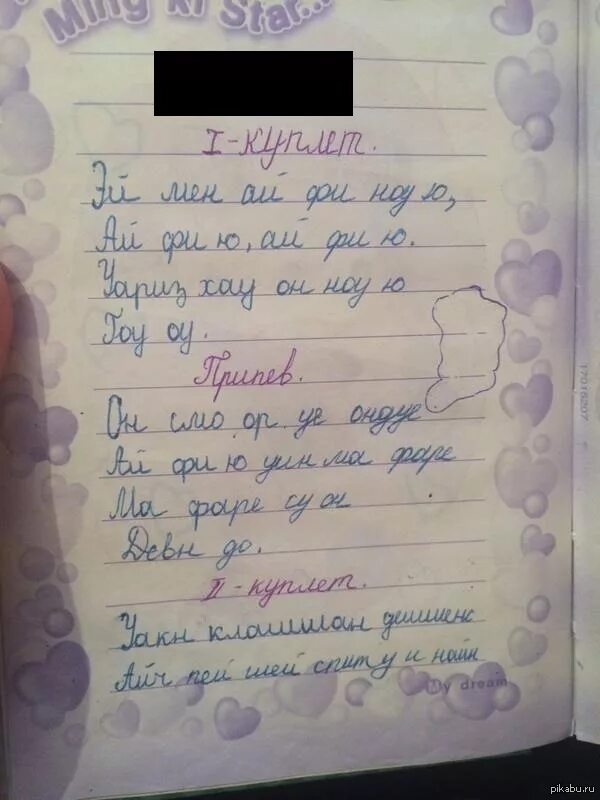 Ming ki Star...
I-куплет.
Эй мен ай фи ноу ю,
Ай фи ю, ай фи ю.
Уариз хау он ноу ю
Гоу оу.
Припев.
Он смо ор уе ондуе
Ай фи ю уин ма фаре
Ма фаре су он
Девн до.
II-куплет.
Уакн клашшан дешшенс
Айч пей шей спиту и найн
My dream
17018207
pikabu.ru